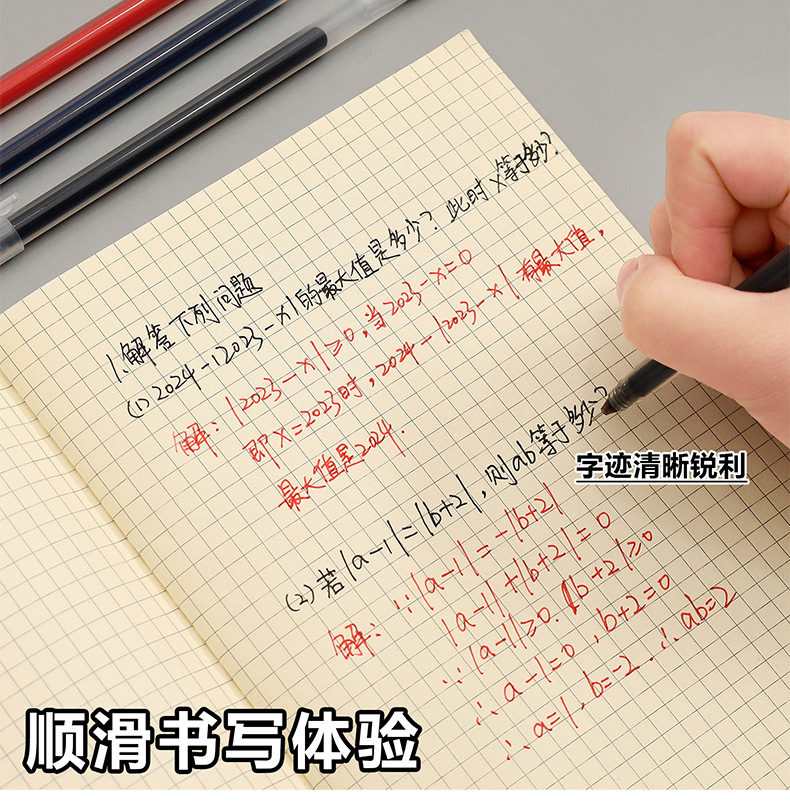 1.解答下列问题
(1) 2024-|2023-x|的最大值是多少？此时x等于多少？
解：|2023-x|≥0，当2023-x=0
即x=2023时，2024-|2023-x|有最大值，
最大值是2024.
(2)若|a-1|=|b+2|，则ab等于多少？
解：∵|a-1|=-|b+2|
|a-1|+|b+2|=0
∵|a-1|≥0.|b+2|≥0
∴a-1=0，b+2=0
∴a=1，b=-2.∴ab=2
字迹清晰锐利
顺滑书写体验